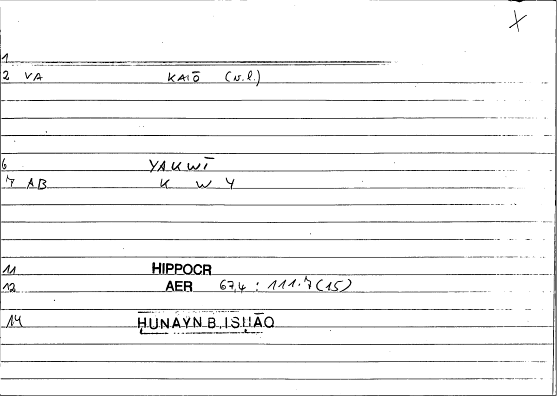 X
1
2 VA KAIŌ (v.l.)
6 YAKWĪ
7 AB K W Y
11 HIPPOCR
12 AER 67,4 : 111.7 (15)
14 ḤUNAYN B. ISḤĀQ